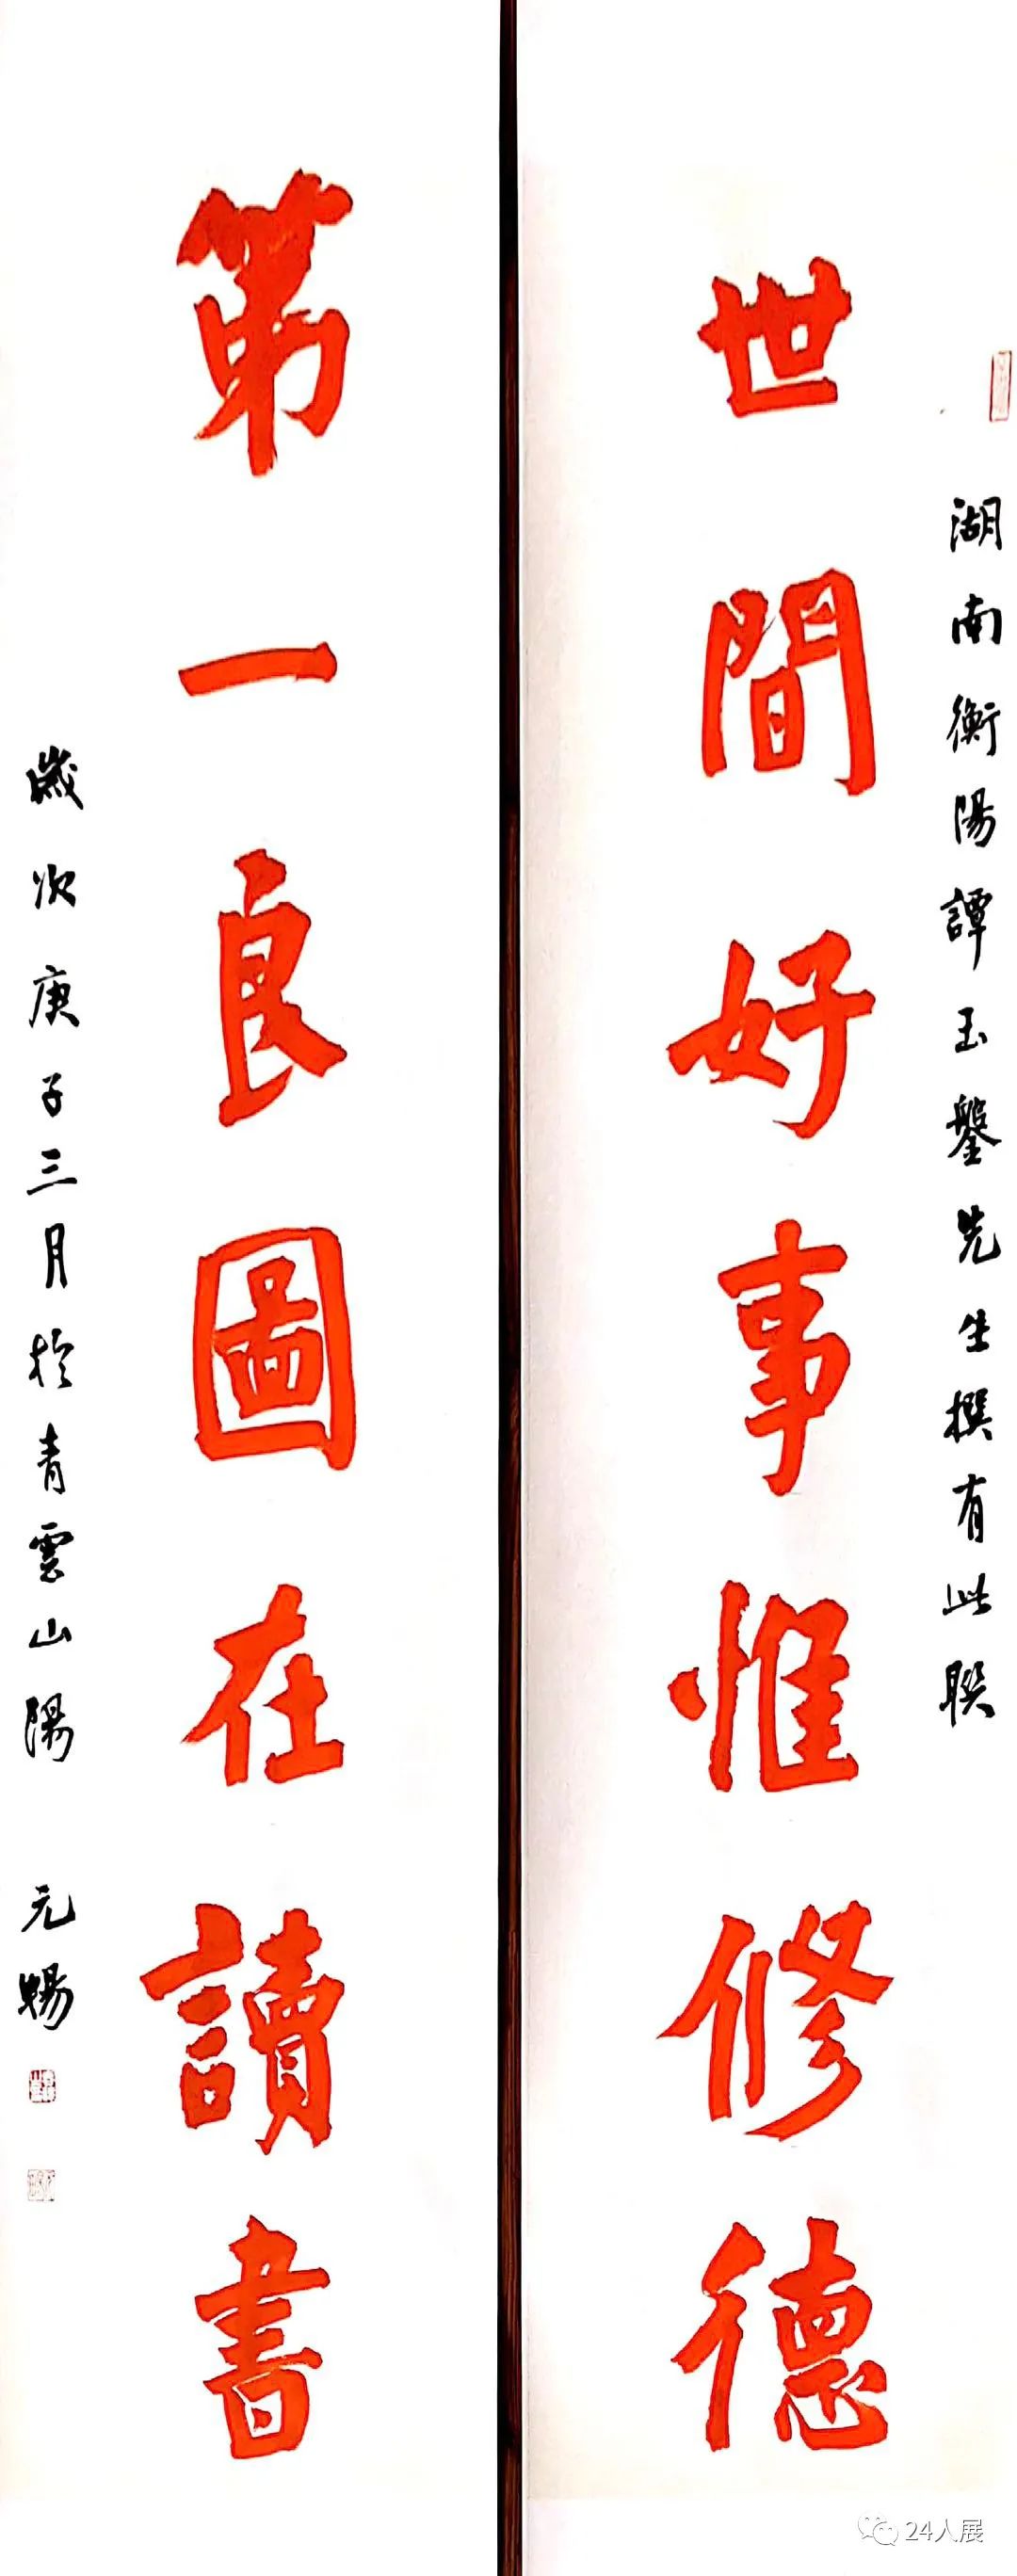 湖南衡陽譚玉鑿先生撰有此聯
世間好事惟修德
第一良圖在讀書
歲次庚子三月於青雲山陽
元暢
24人展